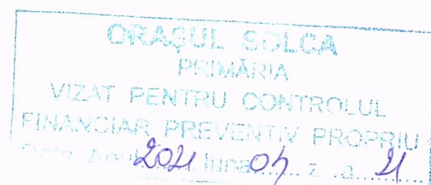 ORAȘUL SOLCA
PRIMĂRIA
VIZAT PENTRU CONTROLUL
FINANCIAR PREVENTIV PROPRIU
Anul 2021 luna 04 z.a 21